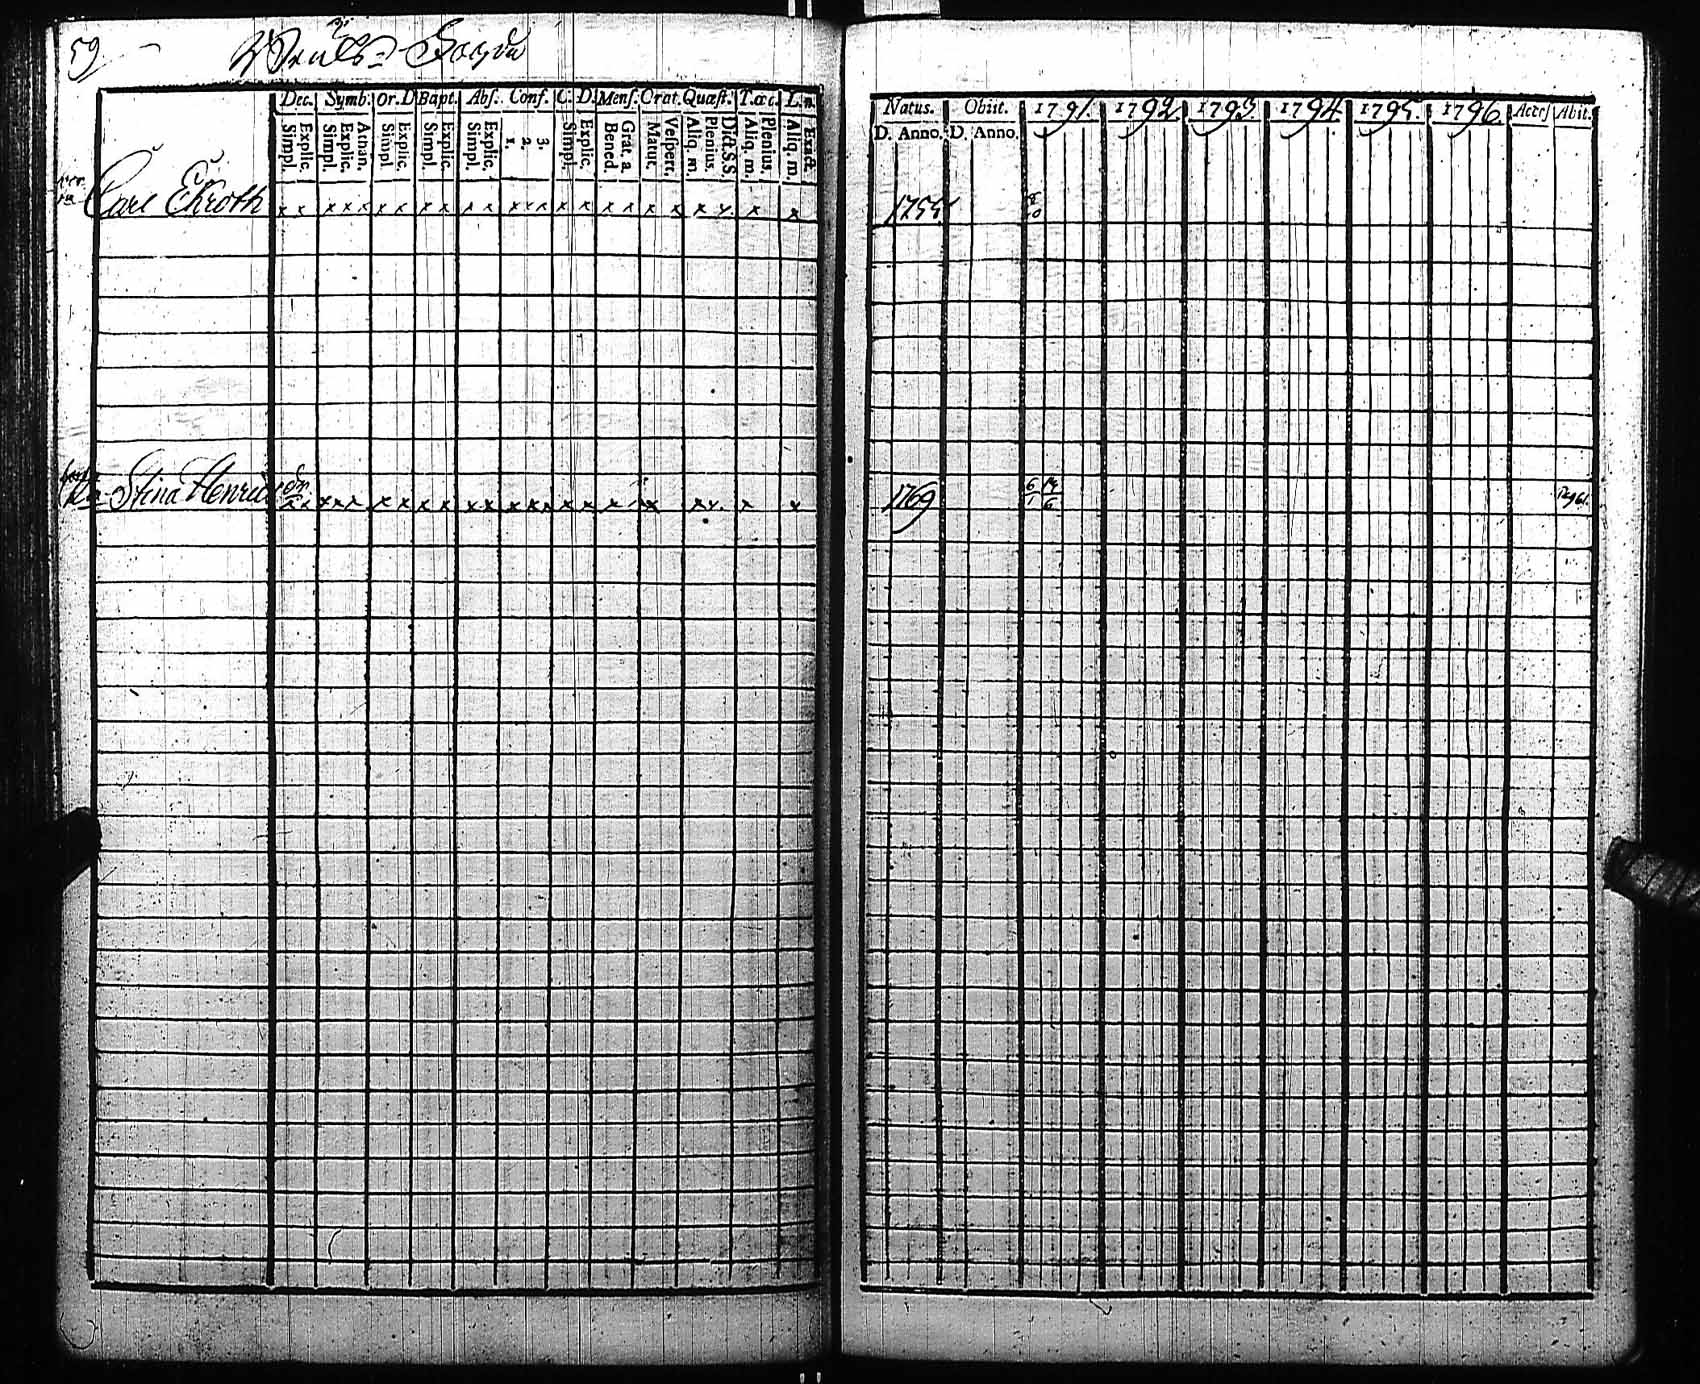 59
Dec. Symb. Or. D Bapt. Abs. Conf. C. D. Mens. Orat. Quæst. T. œc. L. n.
Simpl. Explic. Simpl. Explic. Athan. Simpl. Explic. Simpl. Explic. Simpl. Explic. 1. 2. 3. Simpl. Explic. Bened. Grat. a. Matut. Vesper. Aliq. m. Plenius. Dict. S.S. Aliq. m. Plenius. Aliq. m. Exact.
Carl Ekroth x x x x x x x x x x x x x x x x x x x x x x x x
Stina Henrics dr x x x x x x x x x x x x x x x x x x x x x x
Natus. Obiit. 1791. 1792. 1793. 1794. 1795. 1796. Access Abit.
D. Anno. D. Anno.
1755
1769 6/1 19/6 Pag 61.